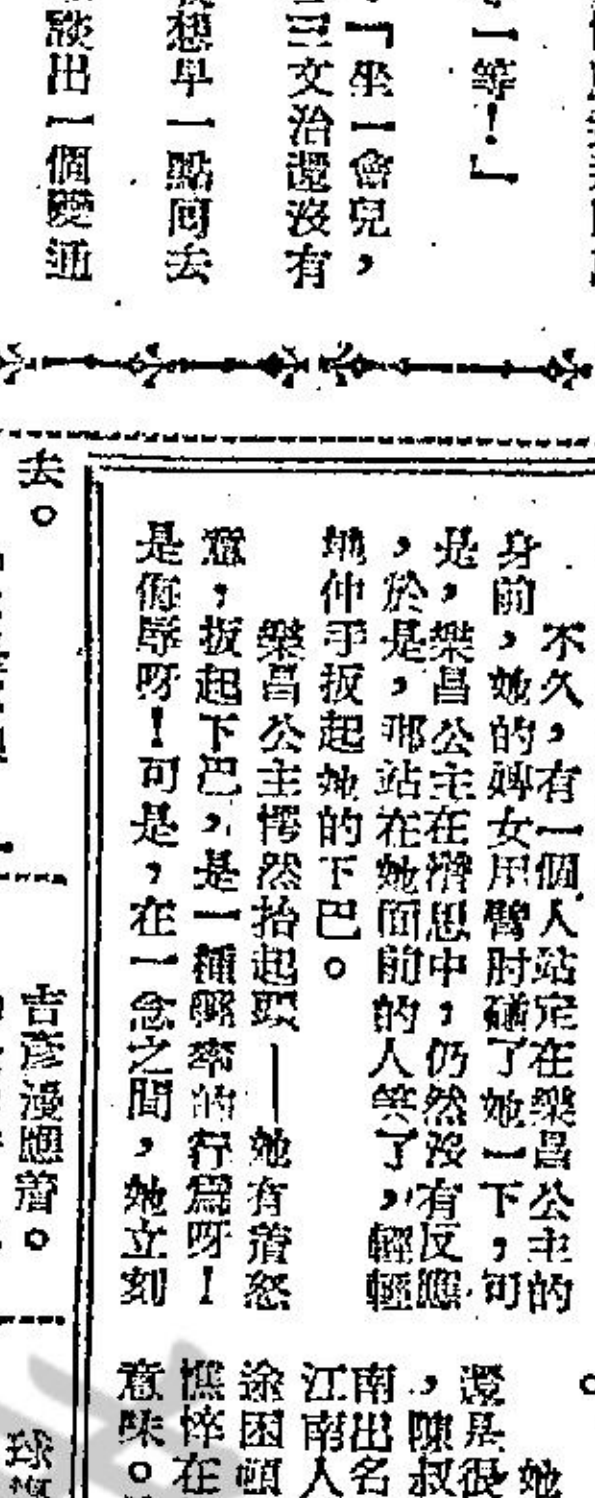 等！』
『坐一會兒，
三文治還沒有
想早一點回去
談出一個變通
不久，有一個人站定在樂昌公主的
身前，她的婢女用臂肘碰了她一下，可
是，樂昌公主在潛思中，仍然沒有反應
，於是，那站在她面前的人笑了，輕輕
地伸手扳起她的下巴。
樂昌公主愕然抬起頭——她有着怒
意，扳起下巴，是一種輕率的行爲呀！
是侮辱呀！可是，在一念之間，她立刻
她
還是很
，陳叔
南出名
江南人
途困頓
憔悴在
意味。
去。
吉彥漫應着。
球